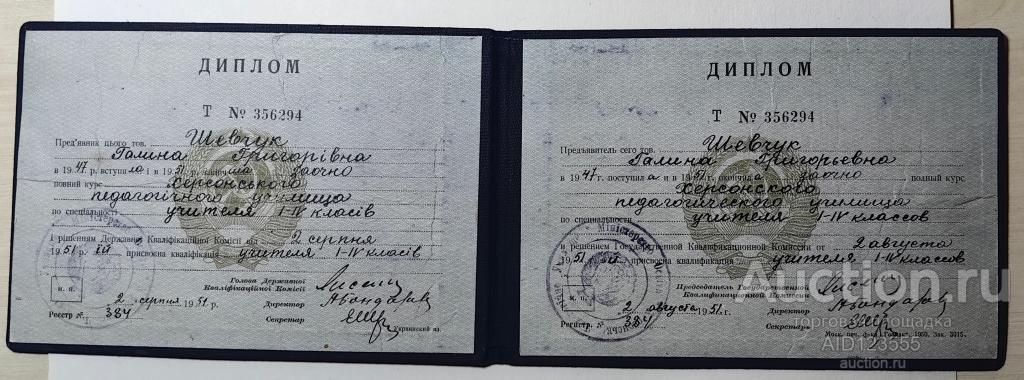 ДИПЛОМ
Т № 356294
Пред'явник цього тов. Шевчук
Галина Григорівна
в 1947 р. вступила і в 1951 р. закінчила заочно
повний курс Херсонського
педагогічного училища
по спеціальності учителя I-IV класів
І рішенням Державної Кваліфікаційної Комісії від 2 серпня
1951 р. їй присвоєна кваліфікація учителя I-IV класів
Голова Державної
Кваліфікаційної Комісії
м. п.
2 серпня 1951 р.
Директор
Реєстр № 384
Секретар
Український яз.
ДИПЛОМ
Т № 356294
Предъявитель сего тов. Шевчук
Галина Григорьевна
в 1947 г. поступила и в 1951 г. окончила заочно полный курс
Херсонского
педагогического училища
по специальности учителя I-IV классов
и решением Государственной Квалификационной Комиссии от 2 августа
1951 г. ей присвоена квалификация учителя I-IV классов
Председатель Государственной
Квалификационной Комиссии
м. п.
2 августа 1951 г.
Директор
Регистр. № 384
Секретарь
Моск. печ. ф-ка Гознак. 1950. Зак. 3015.
Auction.ru
торговая площадка
AID123555
auction.ru